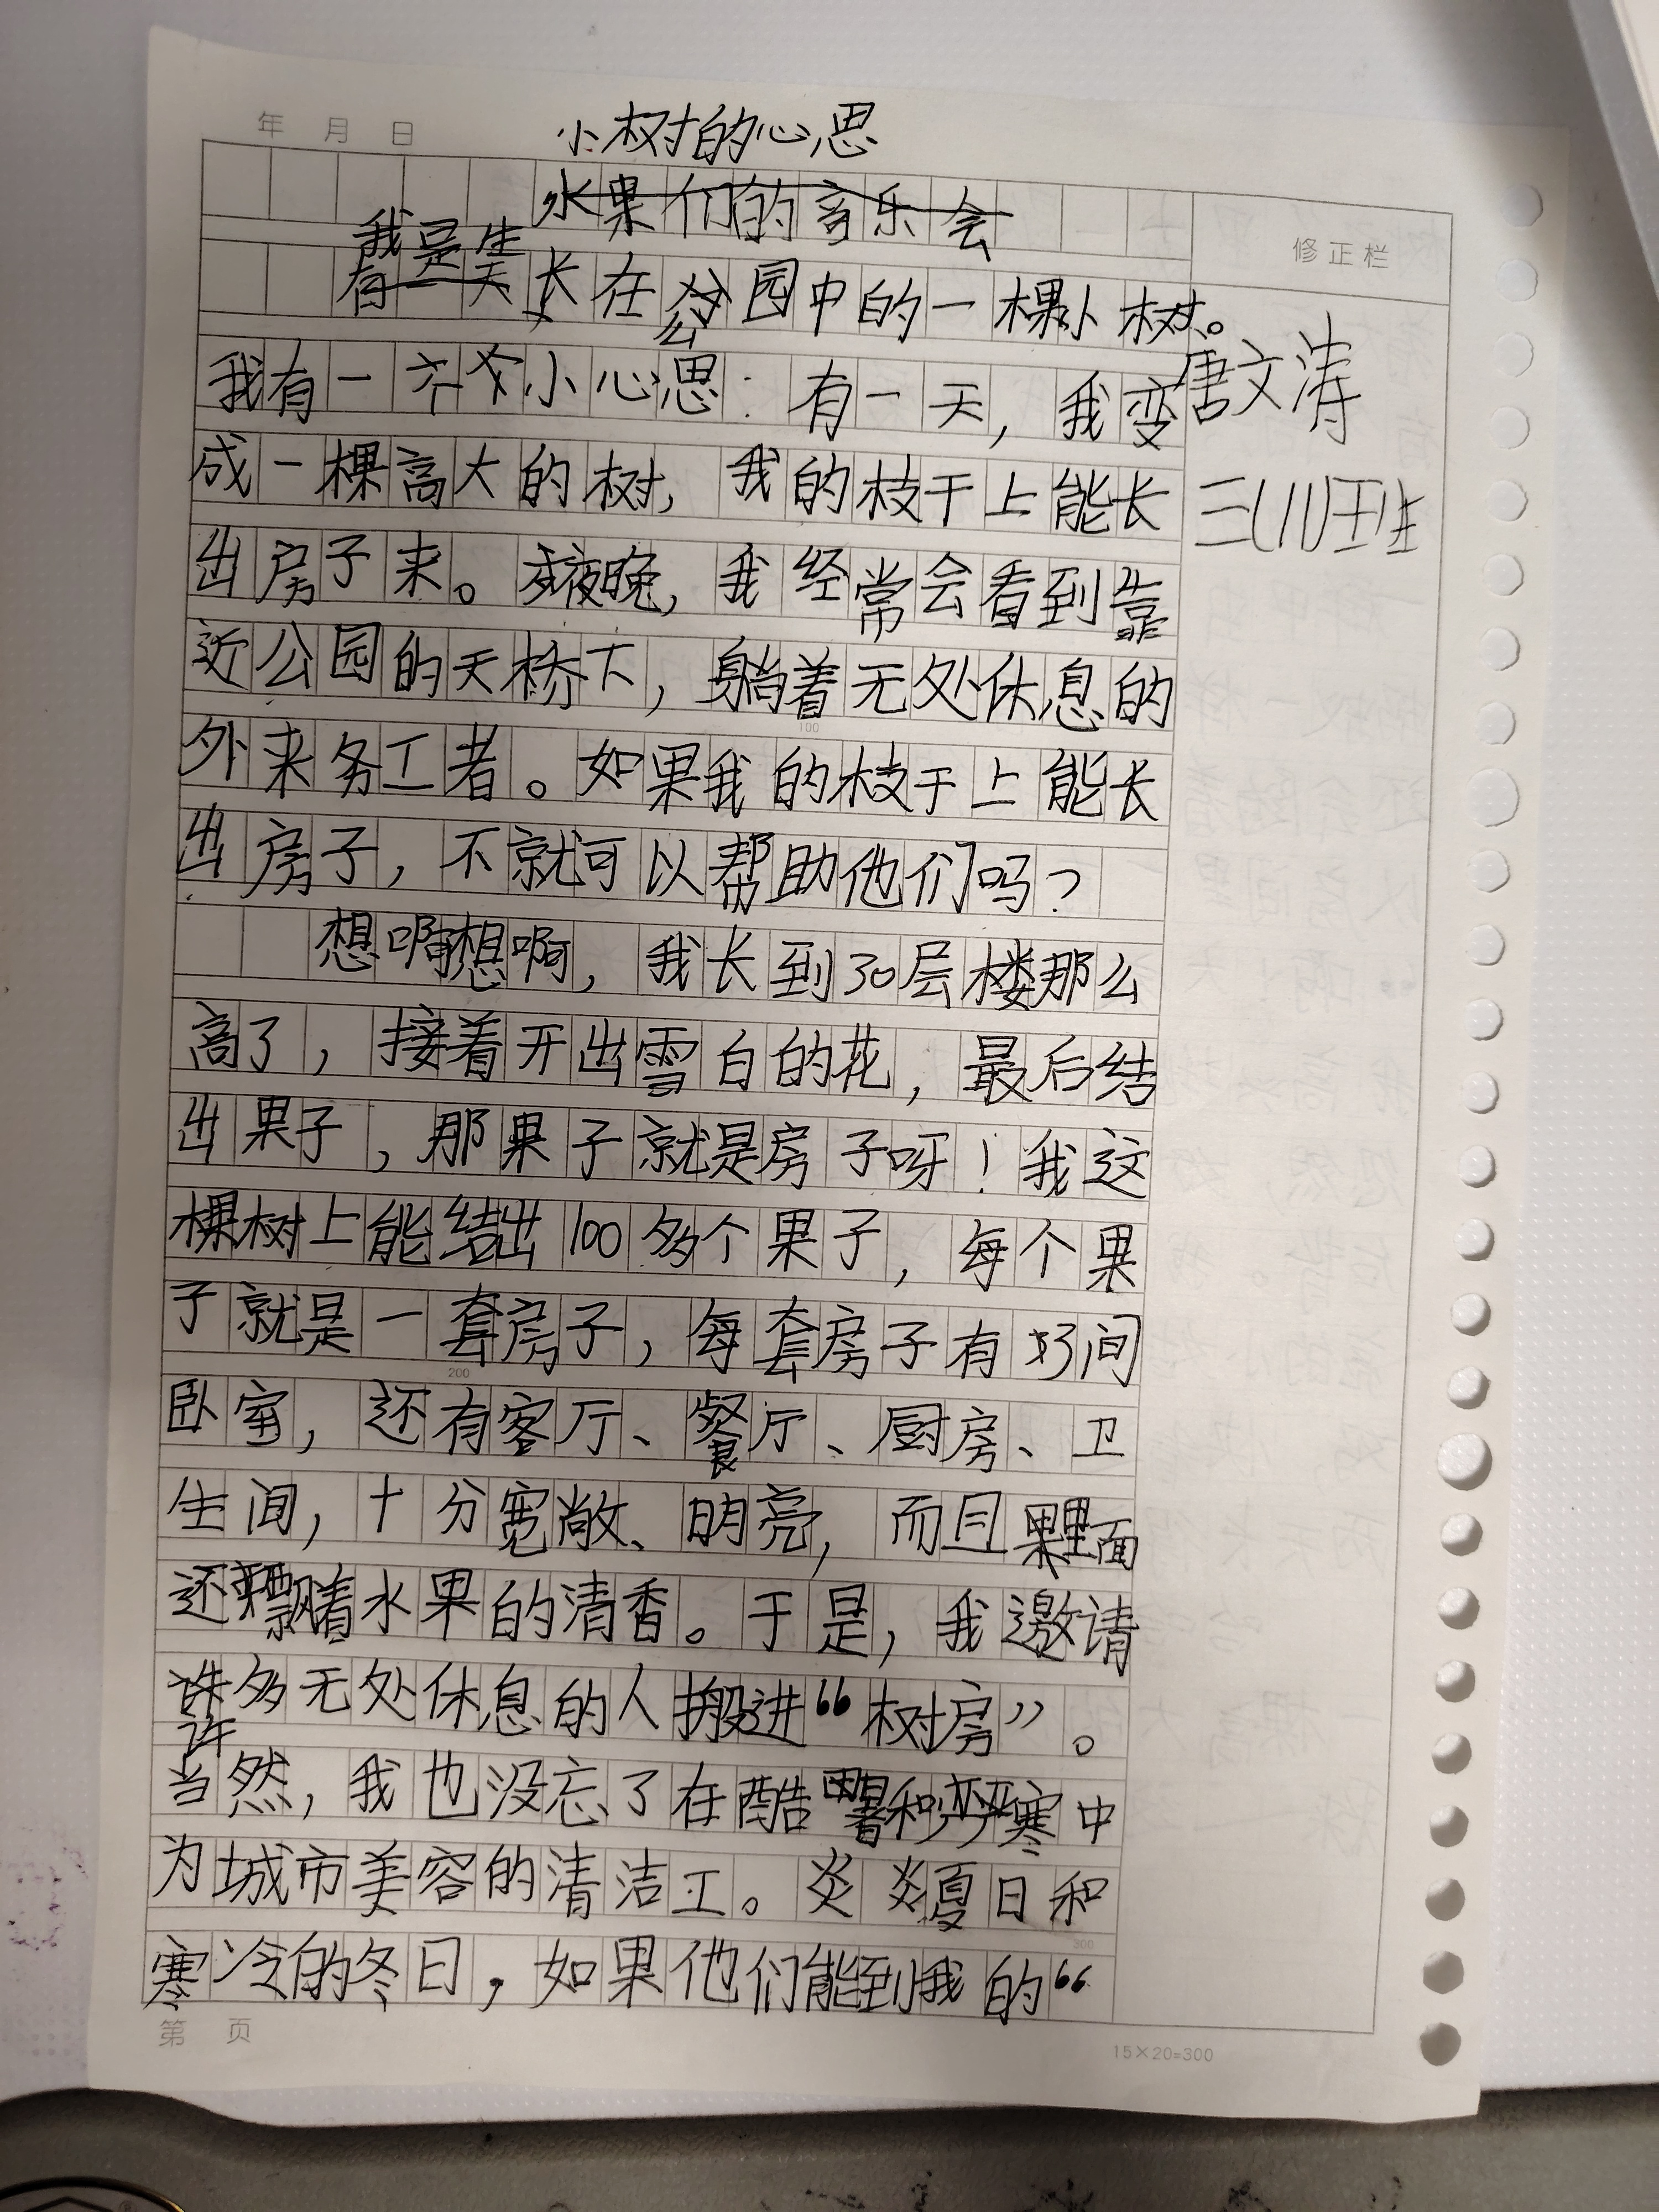 年 月 日
小树的心思
水果们的音乐会
修正栏
我是生
有一天长在公园中的一棵小树。
我有一个小心思:有一天,我变
唐文涛
成一棵高大的树,我的枝干上能长
三(11)班
出房子来。夜晚,我经常会看到靠
近公园的天桥下,躺着无处休息的
100
外来务工者。如果我的枝干上能长
出房子,不就可以帮助他们吗?
想啊想啊,我长到30层楼那么
高了,接着开出雪白的花,最后结
出果子,那果子就是房子呀!我这
棵树上能结出100多个果子,每个果
子就是一套房子,每套房子有好间
200
卧室,还有客厅、餐厅、厨房、卫
生间,十分宽敞、明亮,而且里面
还飘着水果的清香。于是,我邀请
许多无处休息的人搬进“树房”。
当然,我也没忘了在酷暑和严寒中
为城市美容的清洁工。炎炎夏日和
300
寒冷的冬日,如果他们能到我的“
第 页
15×20=300